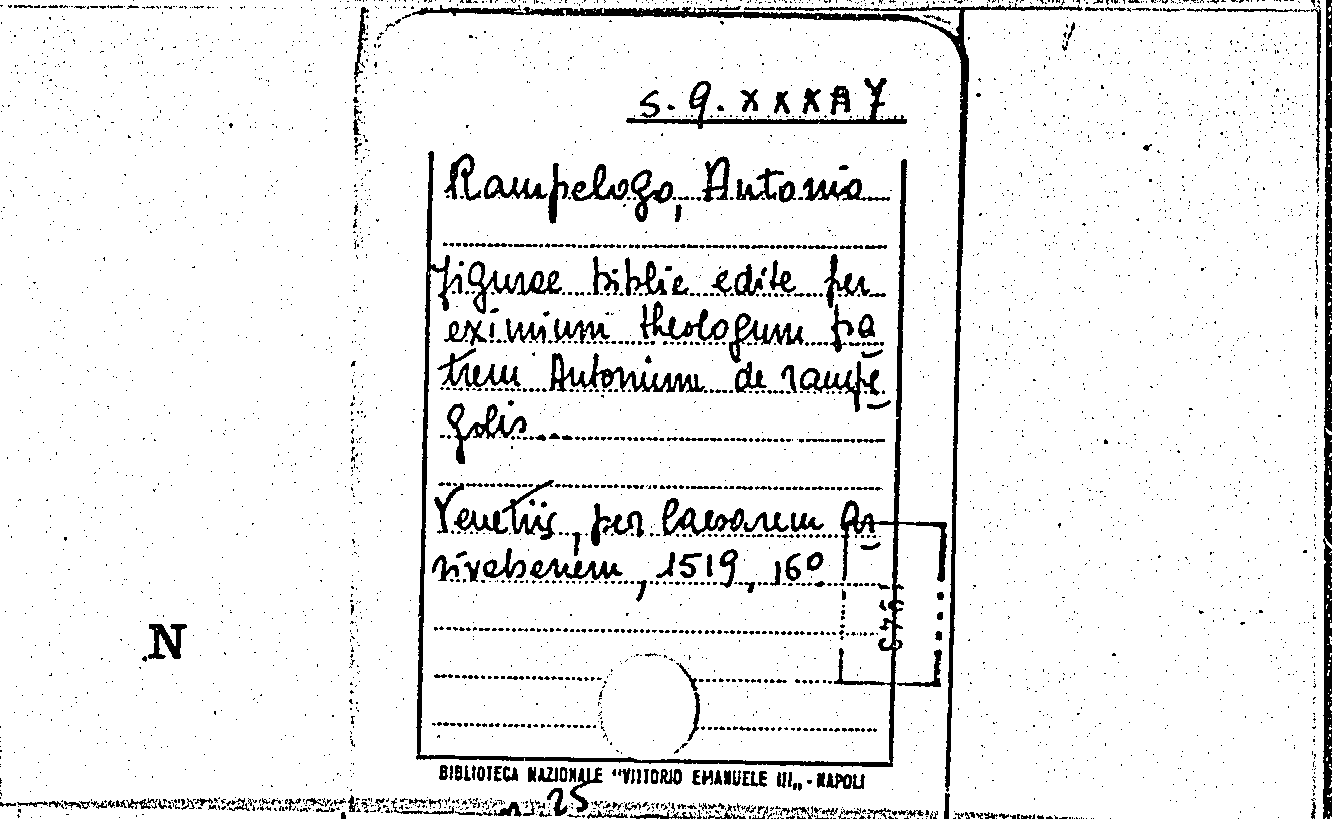 s. q. XXXA 7
Rampelogo, Antonio
Figurae biblie edite per
eximium theologum pa
trem Antonium de rampe
golis...
Venetiis, per Caesarem Ar
rivabenem, 1519, 16º
N
BIBLIOTECA NAZIONALE "VITTORIO EMANUELE III„ - NAPOLI
25